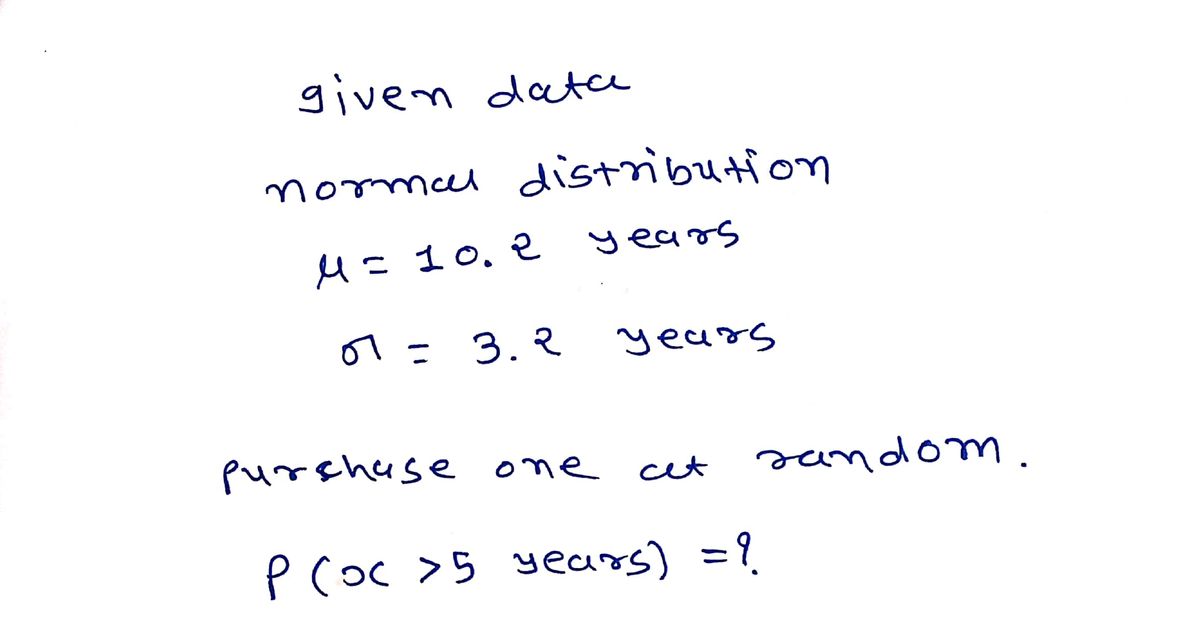 given data
normal distribution
μ = 10.2 years
σ = 3.2 years
purchase one at random.
P(x >5 years) = ?